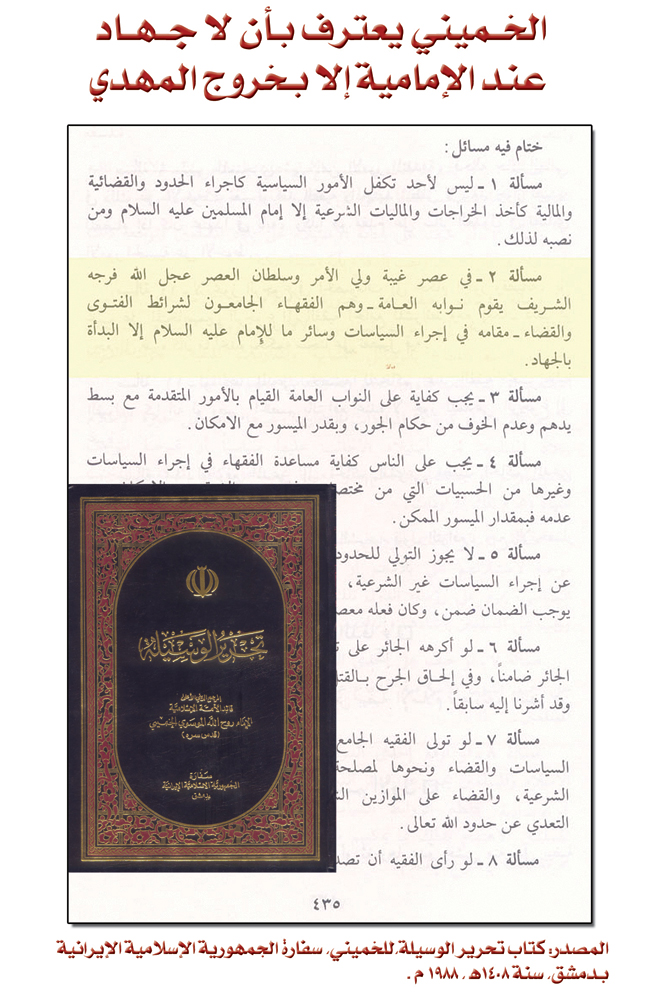 الخميني يعترف بأن لا جهاد
عند الإمامية إلا بخروج المهدي
ختام فيه مسائل :
مسألة ١ ـ ليس لأحد تكفل الأمور السياسية كاجراء الحدود والقضائية
والمالية كأخذ الخراجات والماليات الشرعية إلا إمام المسلمين عليه السلام ومن
نصبه لذلك .
مسألة ٢ ـ في عصر غيبة ولي الأمر وسلطان العصر عجل الله فرجه
الشريف يقوم نوابه العامة ـ وهم الفقهاء الجامعون لشرائط الفتوى
والقضاء ـ مقامه في إجراء السياسات وسائر ما للإمام عليه السلام إلا البدأة
بالجهاد .
مسألة ٣ ـ يجب كفاية على النواب العامة القيام بالأمور المتقدمة مع بسط
يدهم وعدم الخوف من حكام الجور، وبقدر الميسور مع الامكان .
مسألة ٤ ـ يجب على الناس كفاية مساعدة الفقهاء في إجراء السياسات
وغيرها من الحسبيات التي من
عدمه فبمقدار الميسور الممكن .
مسألة ٥ ـ لا يجوز التولي للحدود
عن إجراء السياسات غير الشرعية ،
يوجب الضمان ضمن ، وكان فعله
مسألة ٦ ـ لو أكرهه الجائر على
الجائر ضامناً ، وفي إلحاق الجرح بالقتل
وقد أشرنا إليه سابقاً .
مسألة ٧ ـ لو تولى الفقيه الجامع
السياسات والقضاء ونحوها لمصلحة
الشرعية ، والقضاء على الموازين
التعدي عن حدود الله تعالى .
مسألة ٨ ـ لو رأى الفقيه أن
٤٣٥
تحرير الوسيلة
قائد الأمة الإسلامية
الإمام روح الله الموسوي الخميني
سفارة
الجمهورية الإسلامية الإيرانية
بدمشق
المصدر: كتاب تحرير الوسيلة، للخميني، سفارة الجمهورية الإسلامية الإيرانية
بدمشق، سنة ١٤٠٨هـ، ١٩٨٨ م .